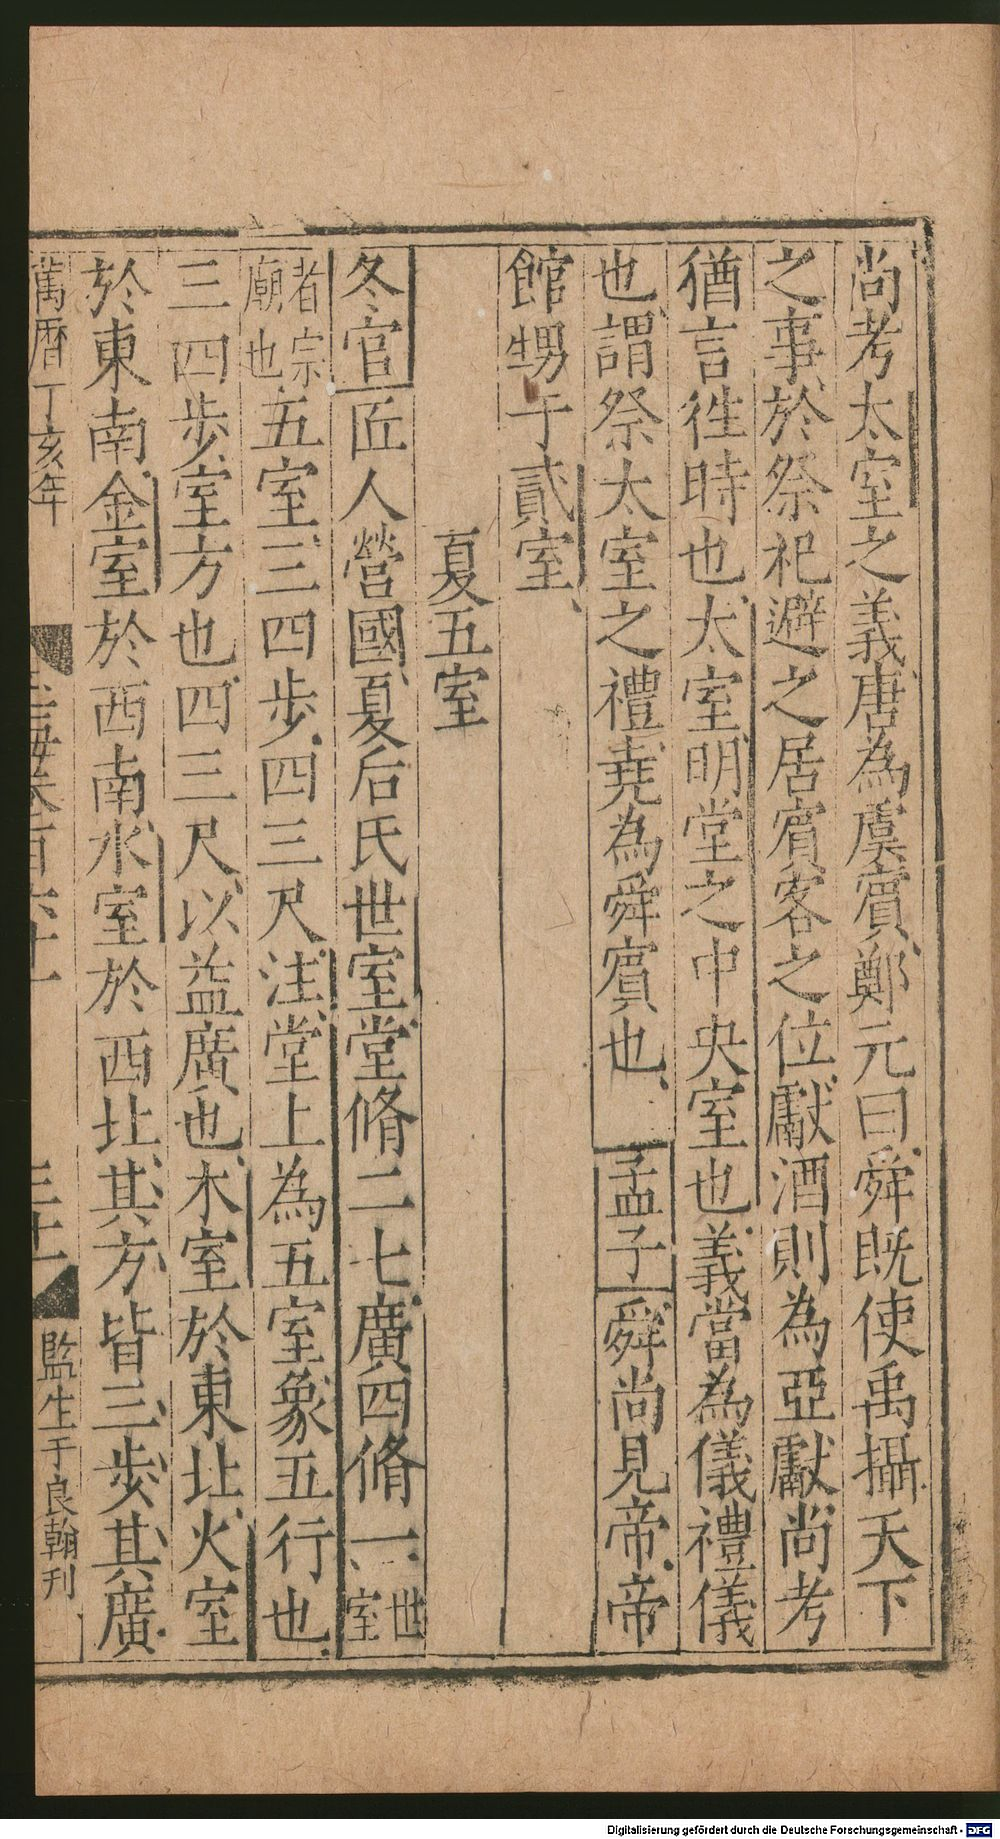 尚考太室之義唐為虞賓鄭元曰舜既使禹攝天下
之事於祭祀避之居賓客之位獻酒則為亞獻尚考
猶言徃時也太室明堂之中央室也義當為儀禮儀
也謂祭太室之禮堯為舜賓也孟子舜尚見帝帝
館甥于貳室
夏五室
冬官匠人營國夏后氏世室堂脩二七廣四脩一世室
者宗廟也五室三四步四三尺注堂上為五室象五行也
三四步室方也四三尺以益廣也木室於東北火室
於東南金室於西南水室於西北其方皆三步其廣
萬曆丁亥年
玉海卷百六十一
三十一
監生于良翰刊
Digitalisierung gefördert durch die Deutsche Forschungsgemeinschaft - DFG